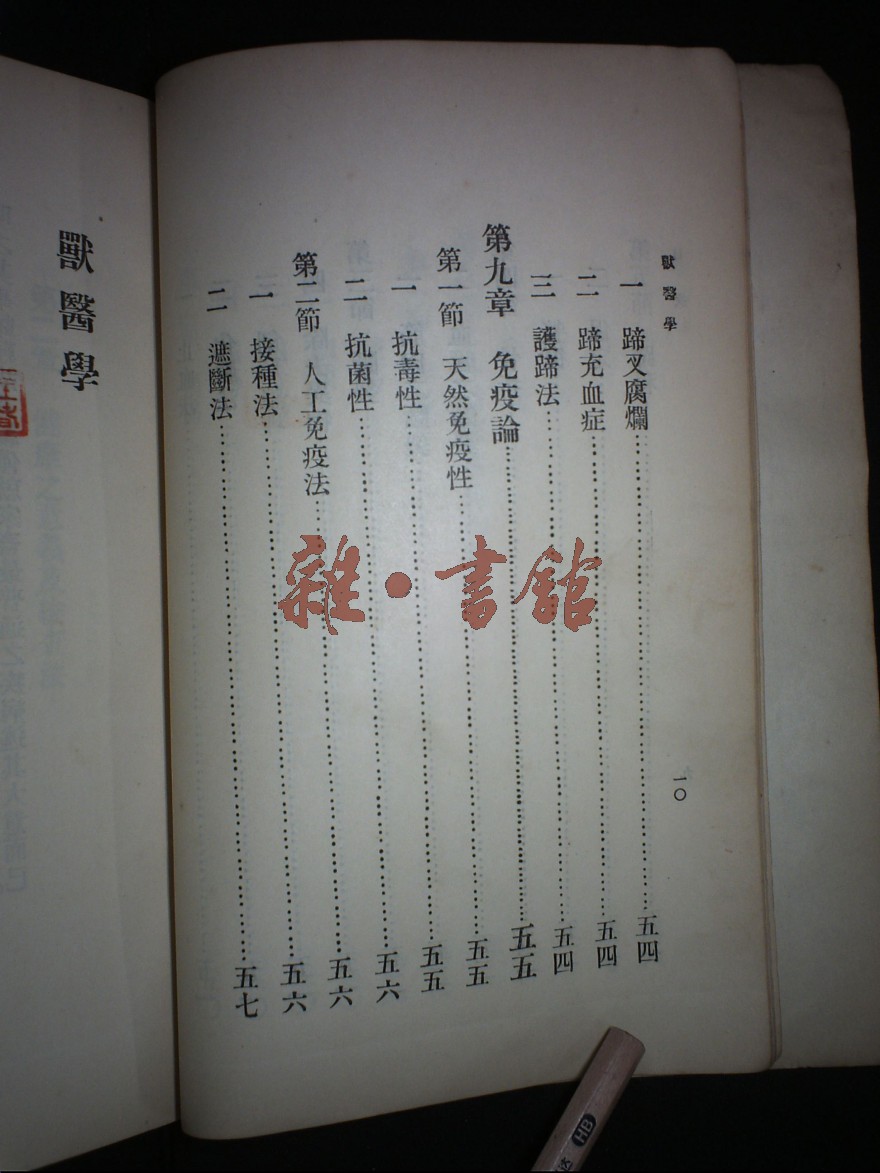 獸醫學
一 蹄叉腐爛………五四
二 蹄充血症………五四
三 護蹄法………五四
第九章 免疫論………五五
第一節 天然免疫性………五五
一 抗毒性………五五
二 抗菌性………五六
第二節 人工免疫法………五六
一 接種法………五六
二 遮斷法………五七
一〇
獸醫學
雜·書館
HB